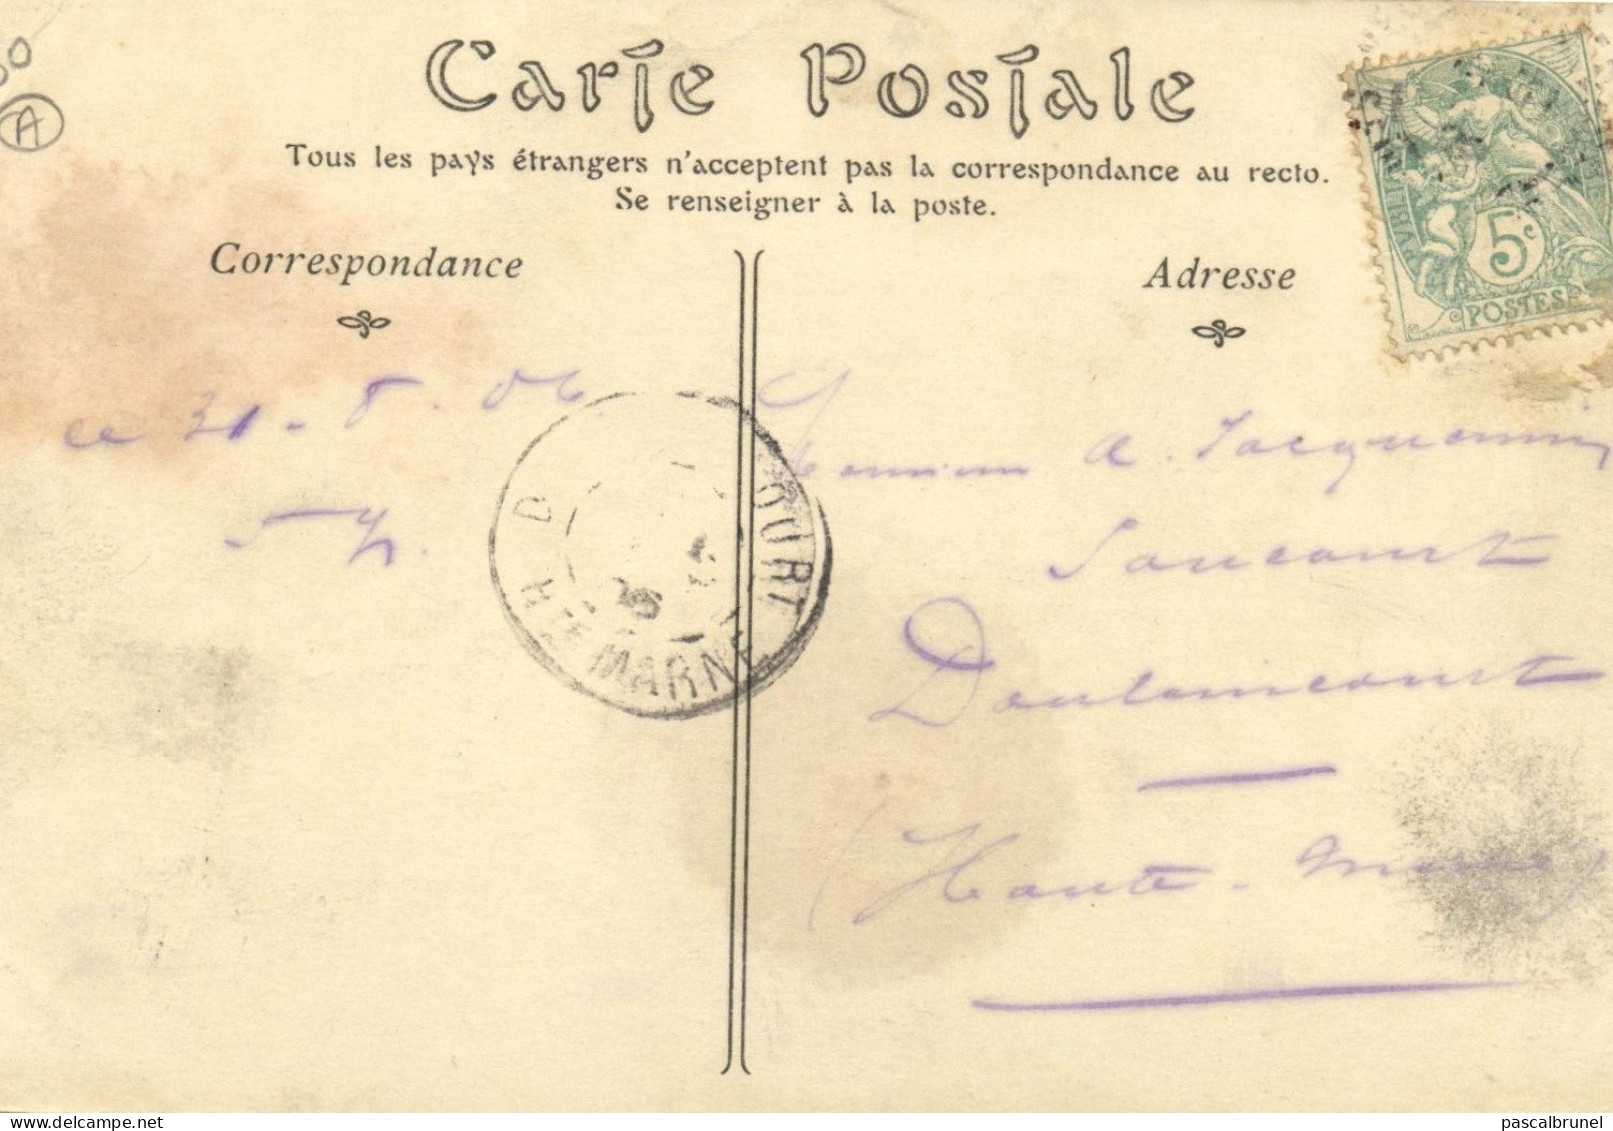 80
A
Carte Postale
Tous les pays étrangers n'acceptent pas la correspondance au recto.
Se renseigner à la poste.
Correspondance
Adresse
5c
POSTES
le 31-8-06
A. Jacquemin
Soncourt
Doulaincourt
(Haute-Marne)
D COURT
Hte MARNE
pascalbrunel